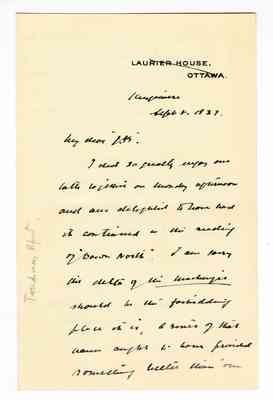 LAURIER HOUSE,
OTTAWA.
Kingsmere
Sept 8. 1937.
My dear
I did so greatly enjoy our
talk together on Monday afternoon
and am delighted to have had
it continued in the reading
of "Down North". I am sorry
the delta of the Mackenzie
should be the forbidding
place it is, a river of that
name ought to have provided
something better than